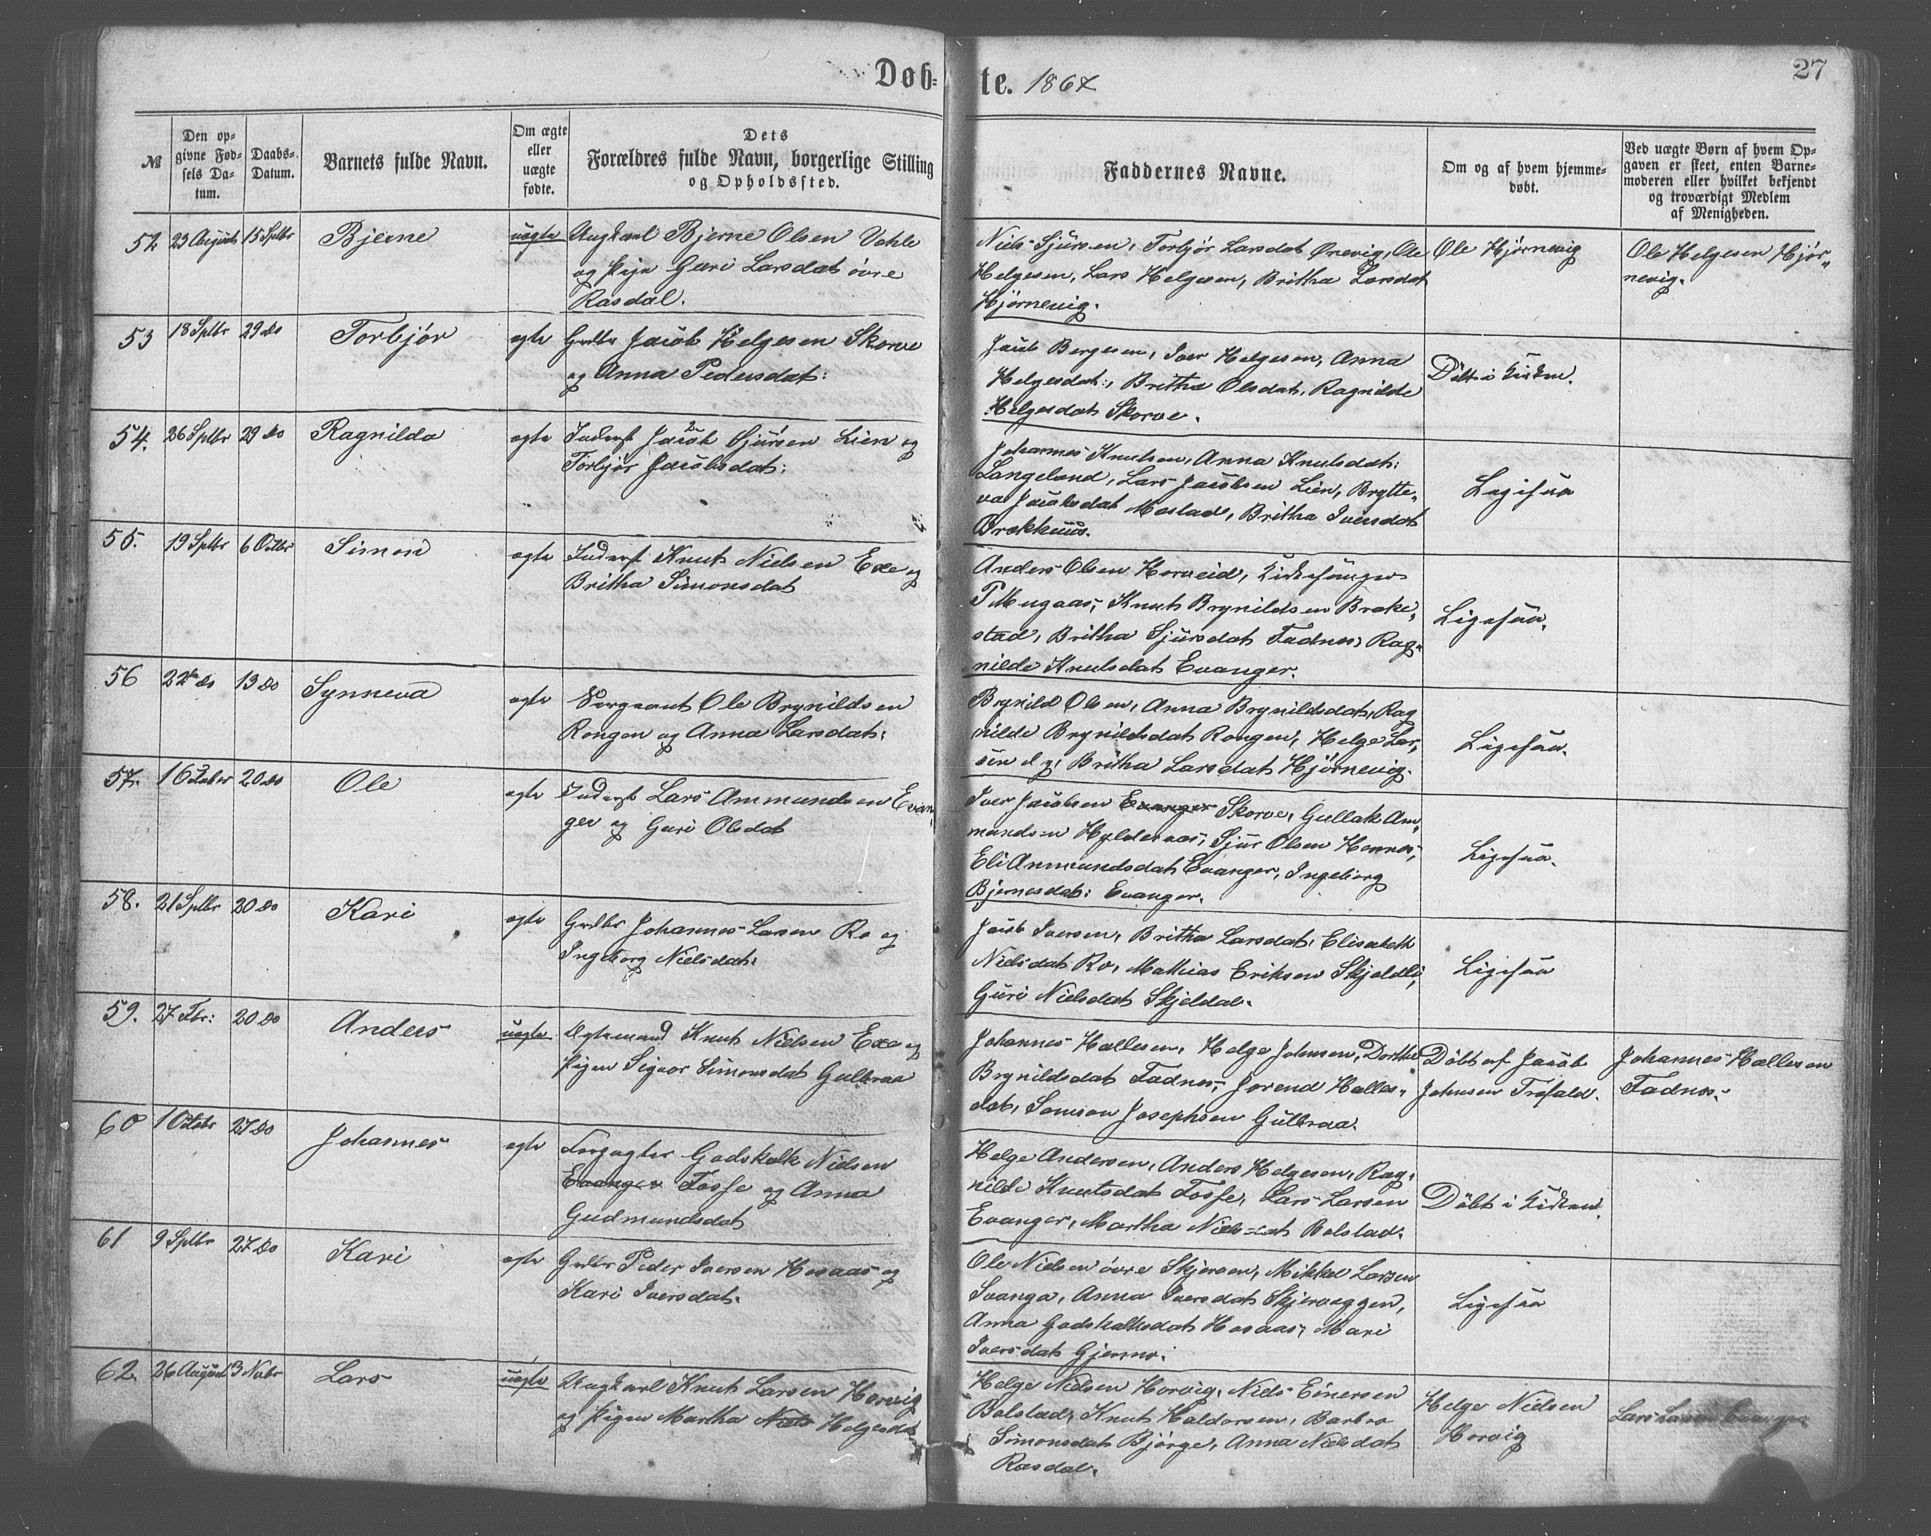 Døb-
te. 1867
27
№
Den op-
givne Fød-
sels Da-
tum.
Daabs-
Datum.
Barnets fulde Navn.
Om ægte
eller
uægte
fødte.
Dets
Forældres fulde Navn, borgerlige Stilling
og Opholdssted.
Faddernes Navne.
Om og af hvem hjemme-
døbt.
Ved uægte Børn af hvem Op-
gaven er skeet, enten Barne-
moderen eller hvilket bekjendt
og troværdigt Medlem
af Menigheden.
52 23 August 15 Sptbr Bjerne uægte Ungkarl Bjerne Olsen Vahle
og Pige Guri Larsdat øvre
Rasdal.
Niels Sjursen, Torbjør Larsdat Ørevig, Ole
Helgesen, Lars Helgesen, Britha Larsdat
Hjørnevig.
Ole Hjørnevig
Ole Helgesen Hjør-
nevig.
53 18 Sptbr 29 do Torbjør ægte Grdbr Jacob Helgesen Skorve
og Anna Pedersdat:
Jacob Bergesen, Iver Helgesen, Anna
Helgesdat:, Britha Olsdat, Ragnilde
Helgesdat Skorve.
Døbt i Kirken.
54. 26 Sptbr 29 do Ragnilda ægte Inderst Jacob Sjursen Lien og
Torbjør Jacobsdat:
Johannes Knutsen, Anna Knutsdat:
Langeland, Lars Jacobsen Lien, Brytte-
va Jacobsdat Mestad, Britha Iversdat
Brækkhuus.
Ligesaa
55. 19 Sptbr 6 Octbr Simon ægte Inderst Knut Nielsen Exe og
Britha Simonsdat
Anders Olsen Horveid, Kirkesanger
P Mugaas, Knut Brynildsen Brake-
stad, Britha Sjursdat Fadnes, Rag-
nilde Knutsdat Evanger.
Ligesaa.
56 22 do 13 do Synneva ægte Sergeant Ole Brynildsen
Rongen og Anna Larsdat:
Brynild Olsen, Anna Brynildsdat, Rag
nilde Brynildsdat Rongen, Helge Lar-
sen d.y. Britha Larsdat Hjørnevig.
Ligesaa.
57. 1 October 20 do Ole ægte Inderst Lars Ammundsen Evan-
ger og Guri Olsdat
Iver Jacobsen Evanger Skorve, Gullak Am-
mundsen Hyldenaas, Sjur Olsen Hernes,
Eli Ammundsdat Evanger, Ingeborg
Bjernesdat: Evanger.
Ligesaa.
58. 21 Sptbr 20 do Kari ægte Grdbr Johannes Larsen Ro og
Ingeborg Nielsdat:
Jacob Iversen, Britha Larsdat, Elisabeth
Nielsdat Ro, Mathias Eriksen Skjeldli,
Guri Nielsdat Skjeldal.
Ligesaa
59. 27 Fbr: 20 do Anders uægte Ægtemand Knut Nielsen Exe og
Pigen Signor Simonsdat Gulbraa
Johannes Hallesen, Helge Johnsen, Dorthe
Brynildsdat Fadnes, Jorend Halles-
dat, Samson Josephsen Gulbraa.
Døbt af Jacob
Johnsen Trefald.
Johannes Hallesen
Fadnes.
60 1 Octobr 27 do Johannes ægte Forpagter Godskalk Nielsen
Evanger Fosse og Anna
Gudmundsdat
Helge Andersen, Anders Helgesen, Rag-
nilde Knutsdat Fosse, Lars Larsen
Evanger, Martha Nielsdat Bolstad.
Døbt i Kirken.
61 9 Sptbr 27 do Kari ægte Grdbr Peder Iversen Hosaas og
Kari Iversdat.
Ole Nielsen øvre Skjersen, Mikkel Larsen
Svanga, Anna Iversdat Skjerveggen,
Anna Godskalksdat Hosaas, Mari
Iversdat Gjerme.
Ligesaa
62. 26 August 3 Novbr Lars uægte Ungkarl Knut Larsen Horvig
og Pigen Martha Niels Helgesdat
Helge Nielsen Horvig, Niels Einersen
Bolstad, Knut Haldorsen, Barbro
Simonsdat Bjørge, Anna Nielsdat
Rasdal.
Helge Nielsen
Horvig
Lars Larsen Evanger